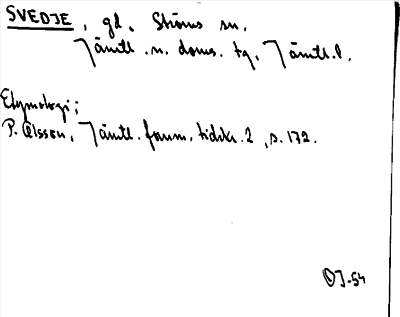 SVEDJE, gd. Ströms sn.
Jämtl. n. doms. tg. Jämtl. l.
Etymologi;
P. Olsson, Jämtl. fornm. tidskr. 2, s. 172.
OJ-54